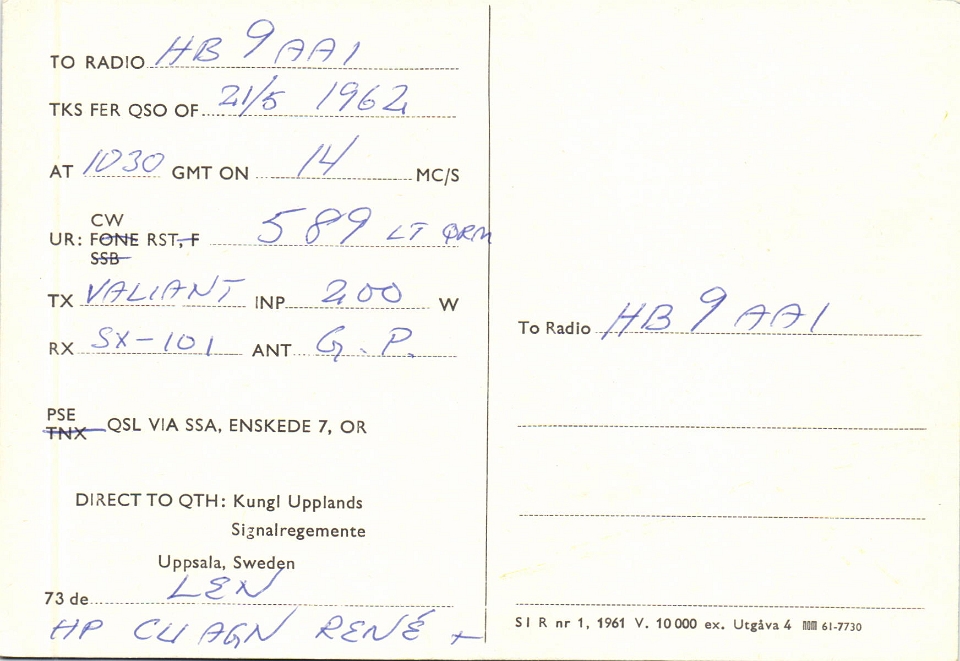 TO RADIO HB9AA1
TKS FER QSO OF 21/5 1962
AT 1030 GMT ON 14 MC/S
CW
UR: FONE RST, F 589 LT QRM
SSB
TX VALIANT INP 200 W
RX SX-101 ANT G.P.
PSE
TNX QSL VIA SSA, ENSKEDE 7, OR
DIRECT TO QTH: Kungl Upplands
Signalregemente
Uppsala, Sweden
73 de LEN
HP CU AGN RENÉ +
To Radio HB9AA1
S I R nr 1, 1961 V. 10 000 ex. Utgåva 4 61-7730